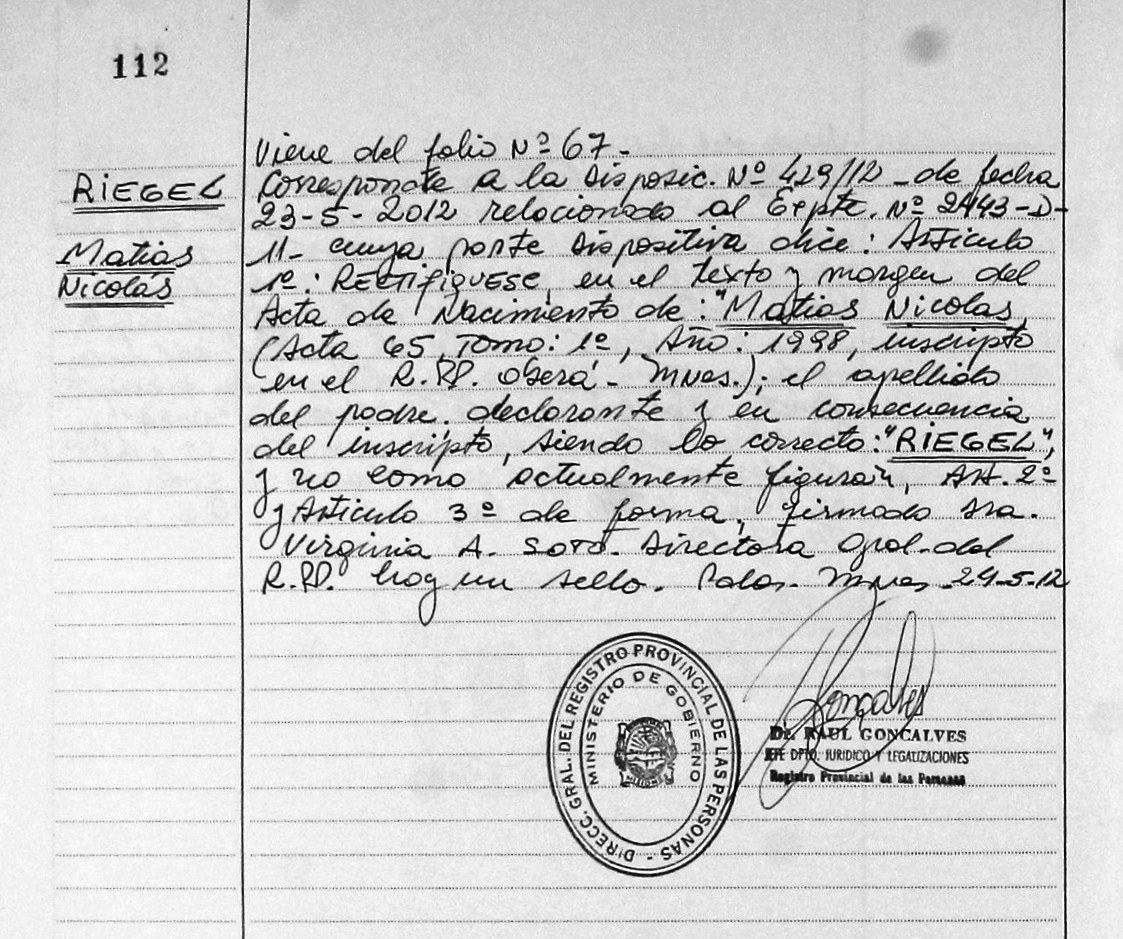 112
RIEGEL
Matias
Nicolás
Viene del folio Nº 67.-
Corresponde a la Disposic. Nº 429/12 - de fecha
23-5-2012 relacionado al Expte. Nº 2443-D-
11- cuya parte dispositiva dice: Artículo
1º: RECTIFIQUESE, en el texto y margen del
Acta de Nacimiento de: "Matias Nicolas,
(Acta 65, Tomo: 1º, Año: 1998, inscripto
en el R.PP. Oberá - Mnes.); el apellido
del padre declarante y en consecuencia
del inscripto, siendo lo correcto: "RIEGEL",
y no como actualmente figuran, Art. 2º
y Artículo 3º de forma, firmado Sra.
Virginia A. Soto. Directora Gral. del
R.PP. hay un sello. Pdas. Mnes 24-5-12
DIRECC. GRAL. DEL REGISTRO PROVINCIAL DE LAS PERSONAS -
MINISTERIO DE GOBIERNO
MISIONES
Gonçalves
Dr. RAUL GONCALVES
JEFE DPTO. JURIDICO Y LEGALIZACIONES
Registro Provincial de las Personas